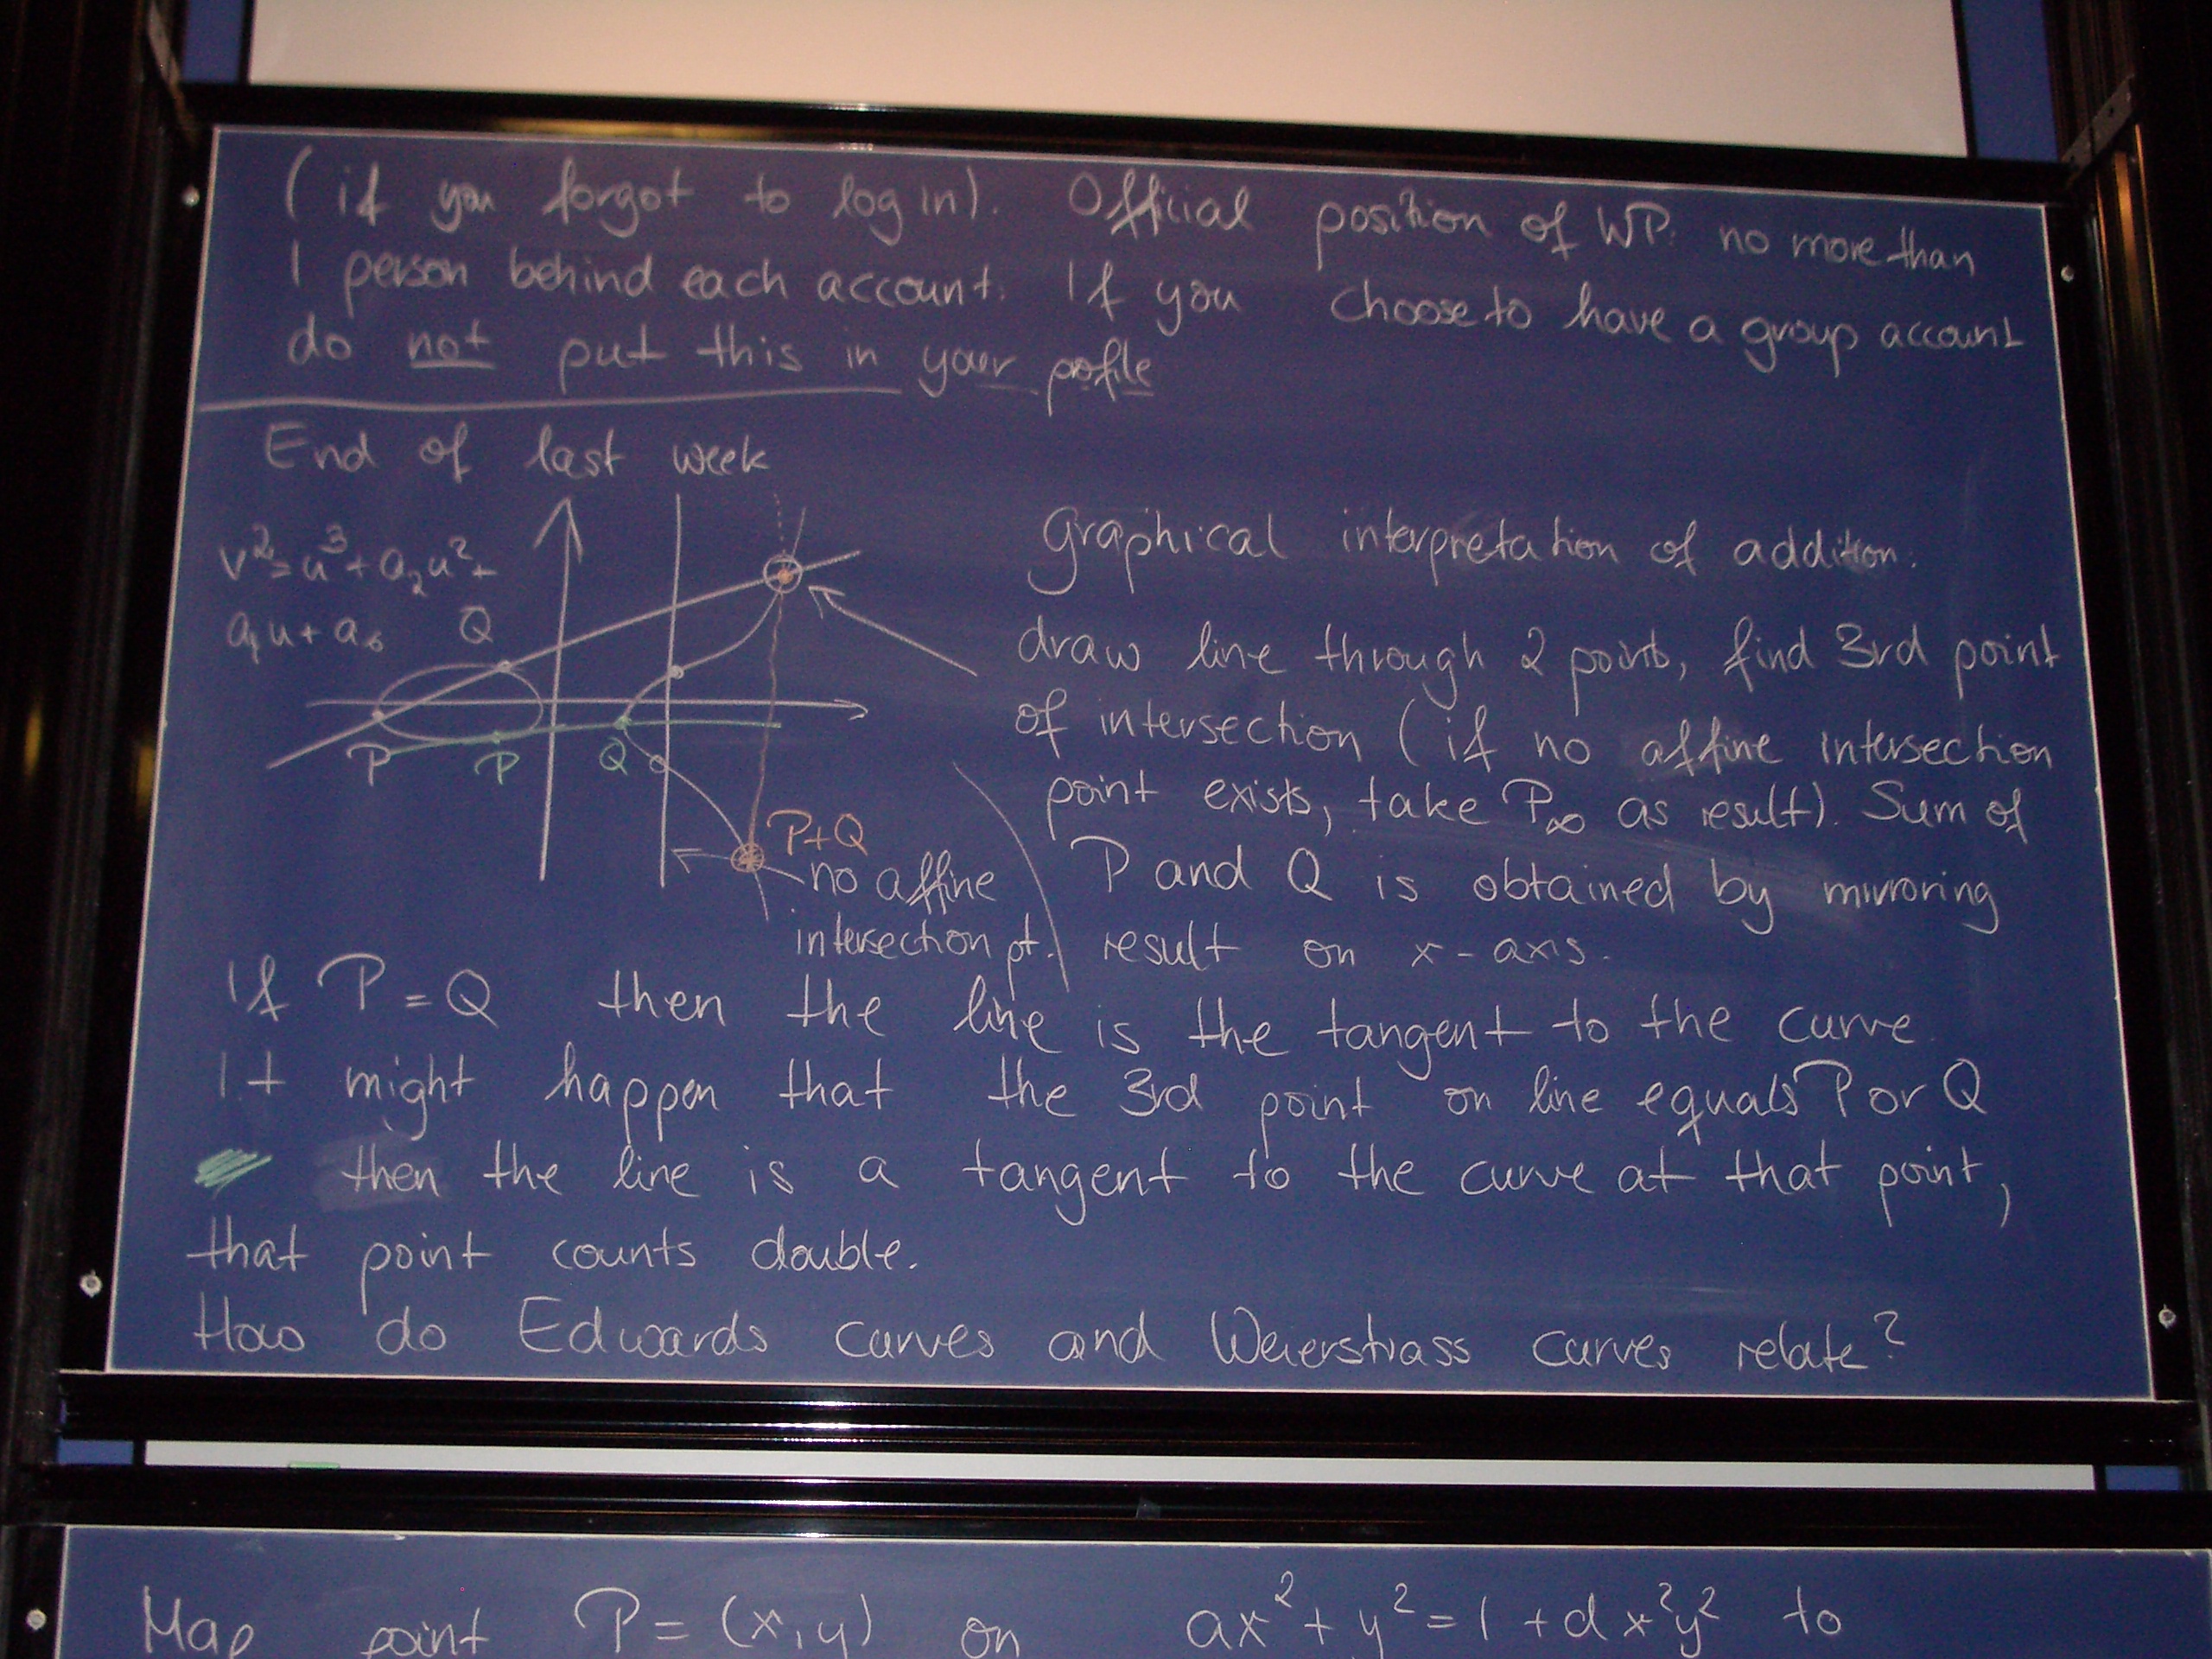 (if you forgot to log in). Official position of WP: no more than
1 person behind each account. If you choose to have a group account
do not put this in your pofile
End of last week
v²=u³+a₂u²+
a₄u+a₆
Q
P
P
Q
P+Q
no affine
intersection pt.
Graphical interpretation of addition:
draw line through 2 points, find 3rd point
of intersection (if no affine intersection
point exists, take P∞ as result). Sum of
P and Q is obtained by mirroring
result on x-axis.
If P=Q then the line is the tangent to the curve.
It might happen that the 3rd point on line equals P or Q
then the line is a tangent to the curve at that point,
that point counts double.
How do Edwards curves and Weierstrass curves relate?
Map point P=(x,y) on ax²+y²=1+dx²y² to